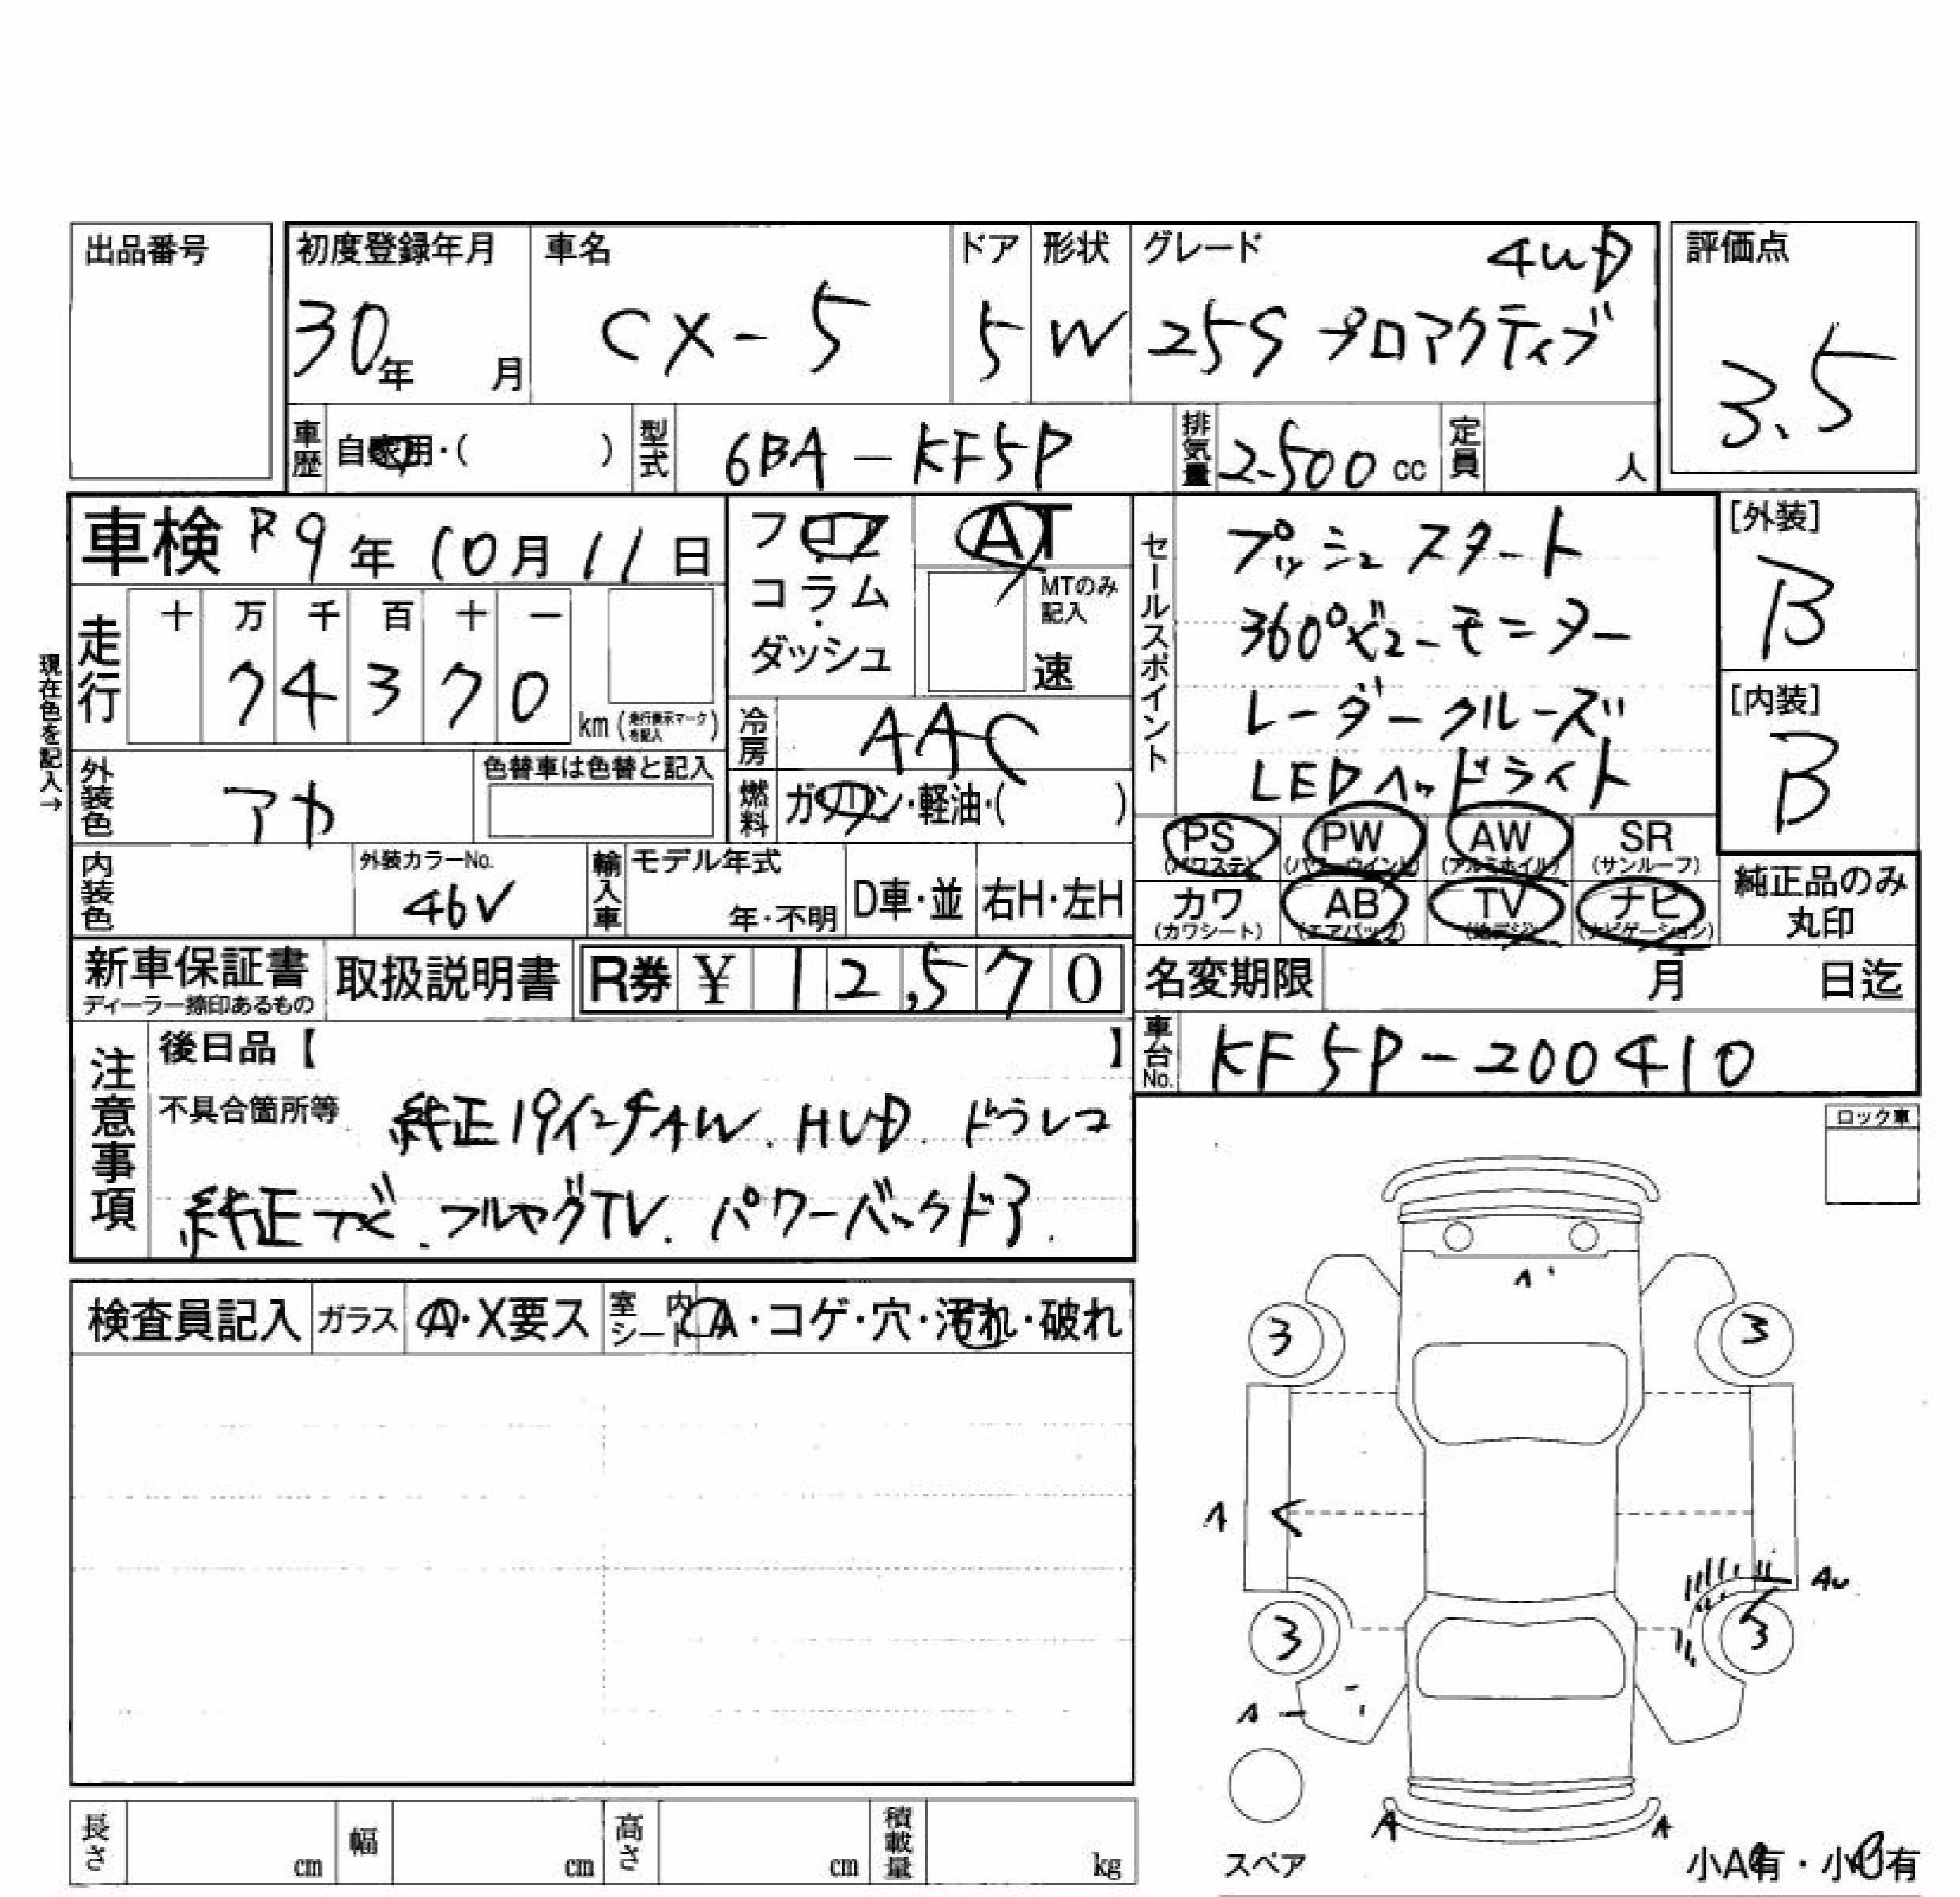 出品番号
初度登録年月 車名 ドア 形状 グレード 4WD 評価点
30年 月 CX-5 5 W 25S プロアクティブ 3.5
車歴 自家用・( ) 型式 6BA-KF5P 排気量 2500cc 定員 人
車検 R9年10月11日 フロア コラム・ダッシュ AT MTのみ記入 速
走行 十 万 千 百 十 一
74370 km (走行表示マークを記入)
現在色を記入→
外装色 アカ 色替車は色替と記入
冷房 AAC
燃料 ガソリン・軽油・( )
内装色 外装カラーNo. 46V 輸入車 モデル年式 年・不明 D車・並 右H・左H
セールスポイント
プッシュスタート
360°ビューモニター
レーダークルーズ
LEDヘッドライト
[外装] B
[内装] B
PS (パワステ) PW (パワーウインド) AW (アルミホイル) SR (サンルーフ)
カワ (カワシート) AB (エアバック) TV (地デジ) ナビ (ナビゲーション)
純正品のみ丸印
新車保証書 ディーラー捺印あるもの 取扱説明書 R券 ¥12,570
名変期限 月 日迄
車台No. KF5P-200410
注意事項 後日品【 】
不具合箇所等 純正19インチAW. HUD. ドラレコ
純正ナビ. フルセグTV. パワーバックドア.
ロック車
検査員記入 ガラス A・X要ス 室内シート A・コゲ・穴・汚れ・破れ
3 3
A
AU
3 3
A
A A
スペア
小A有・小U有
長さ cm 幅 cm 高さ cm 積載量 kg